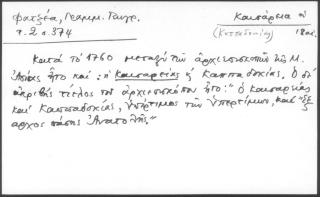 φατζέα, Γραμμ. Τουρ.
τ. 2 σ. 374
Καισάρεια ἡ
(Καππαδοκίας) 18αι.
Κατά τό 1760 μεταξύ τῶν ἀρχιεπισκοπῶν τῆς Μ.
Ἀσίας ἦτο καί ἡ Καισαρείας ἐ Καππαδοκίας, ὁ δέ
ἀκριβής τίτλος τοῦ ἀρχιεπισκόπου ἦτο: "ὁ Καισαρείας
καί Καππαδοκίας, ὑπέρτιμος τῶν ὑπερτίμων, καί "ἔξ
αρχος πάσης Ἀνατολῆς."